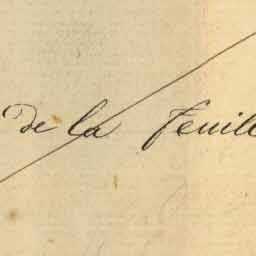 de la feuill